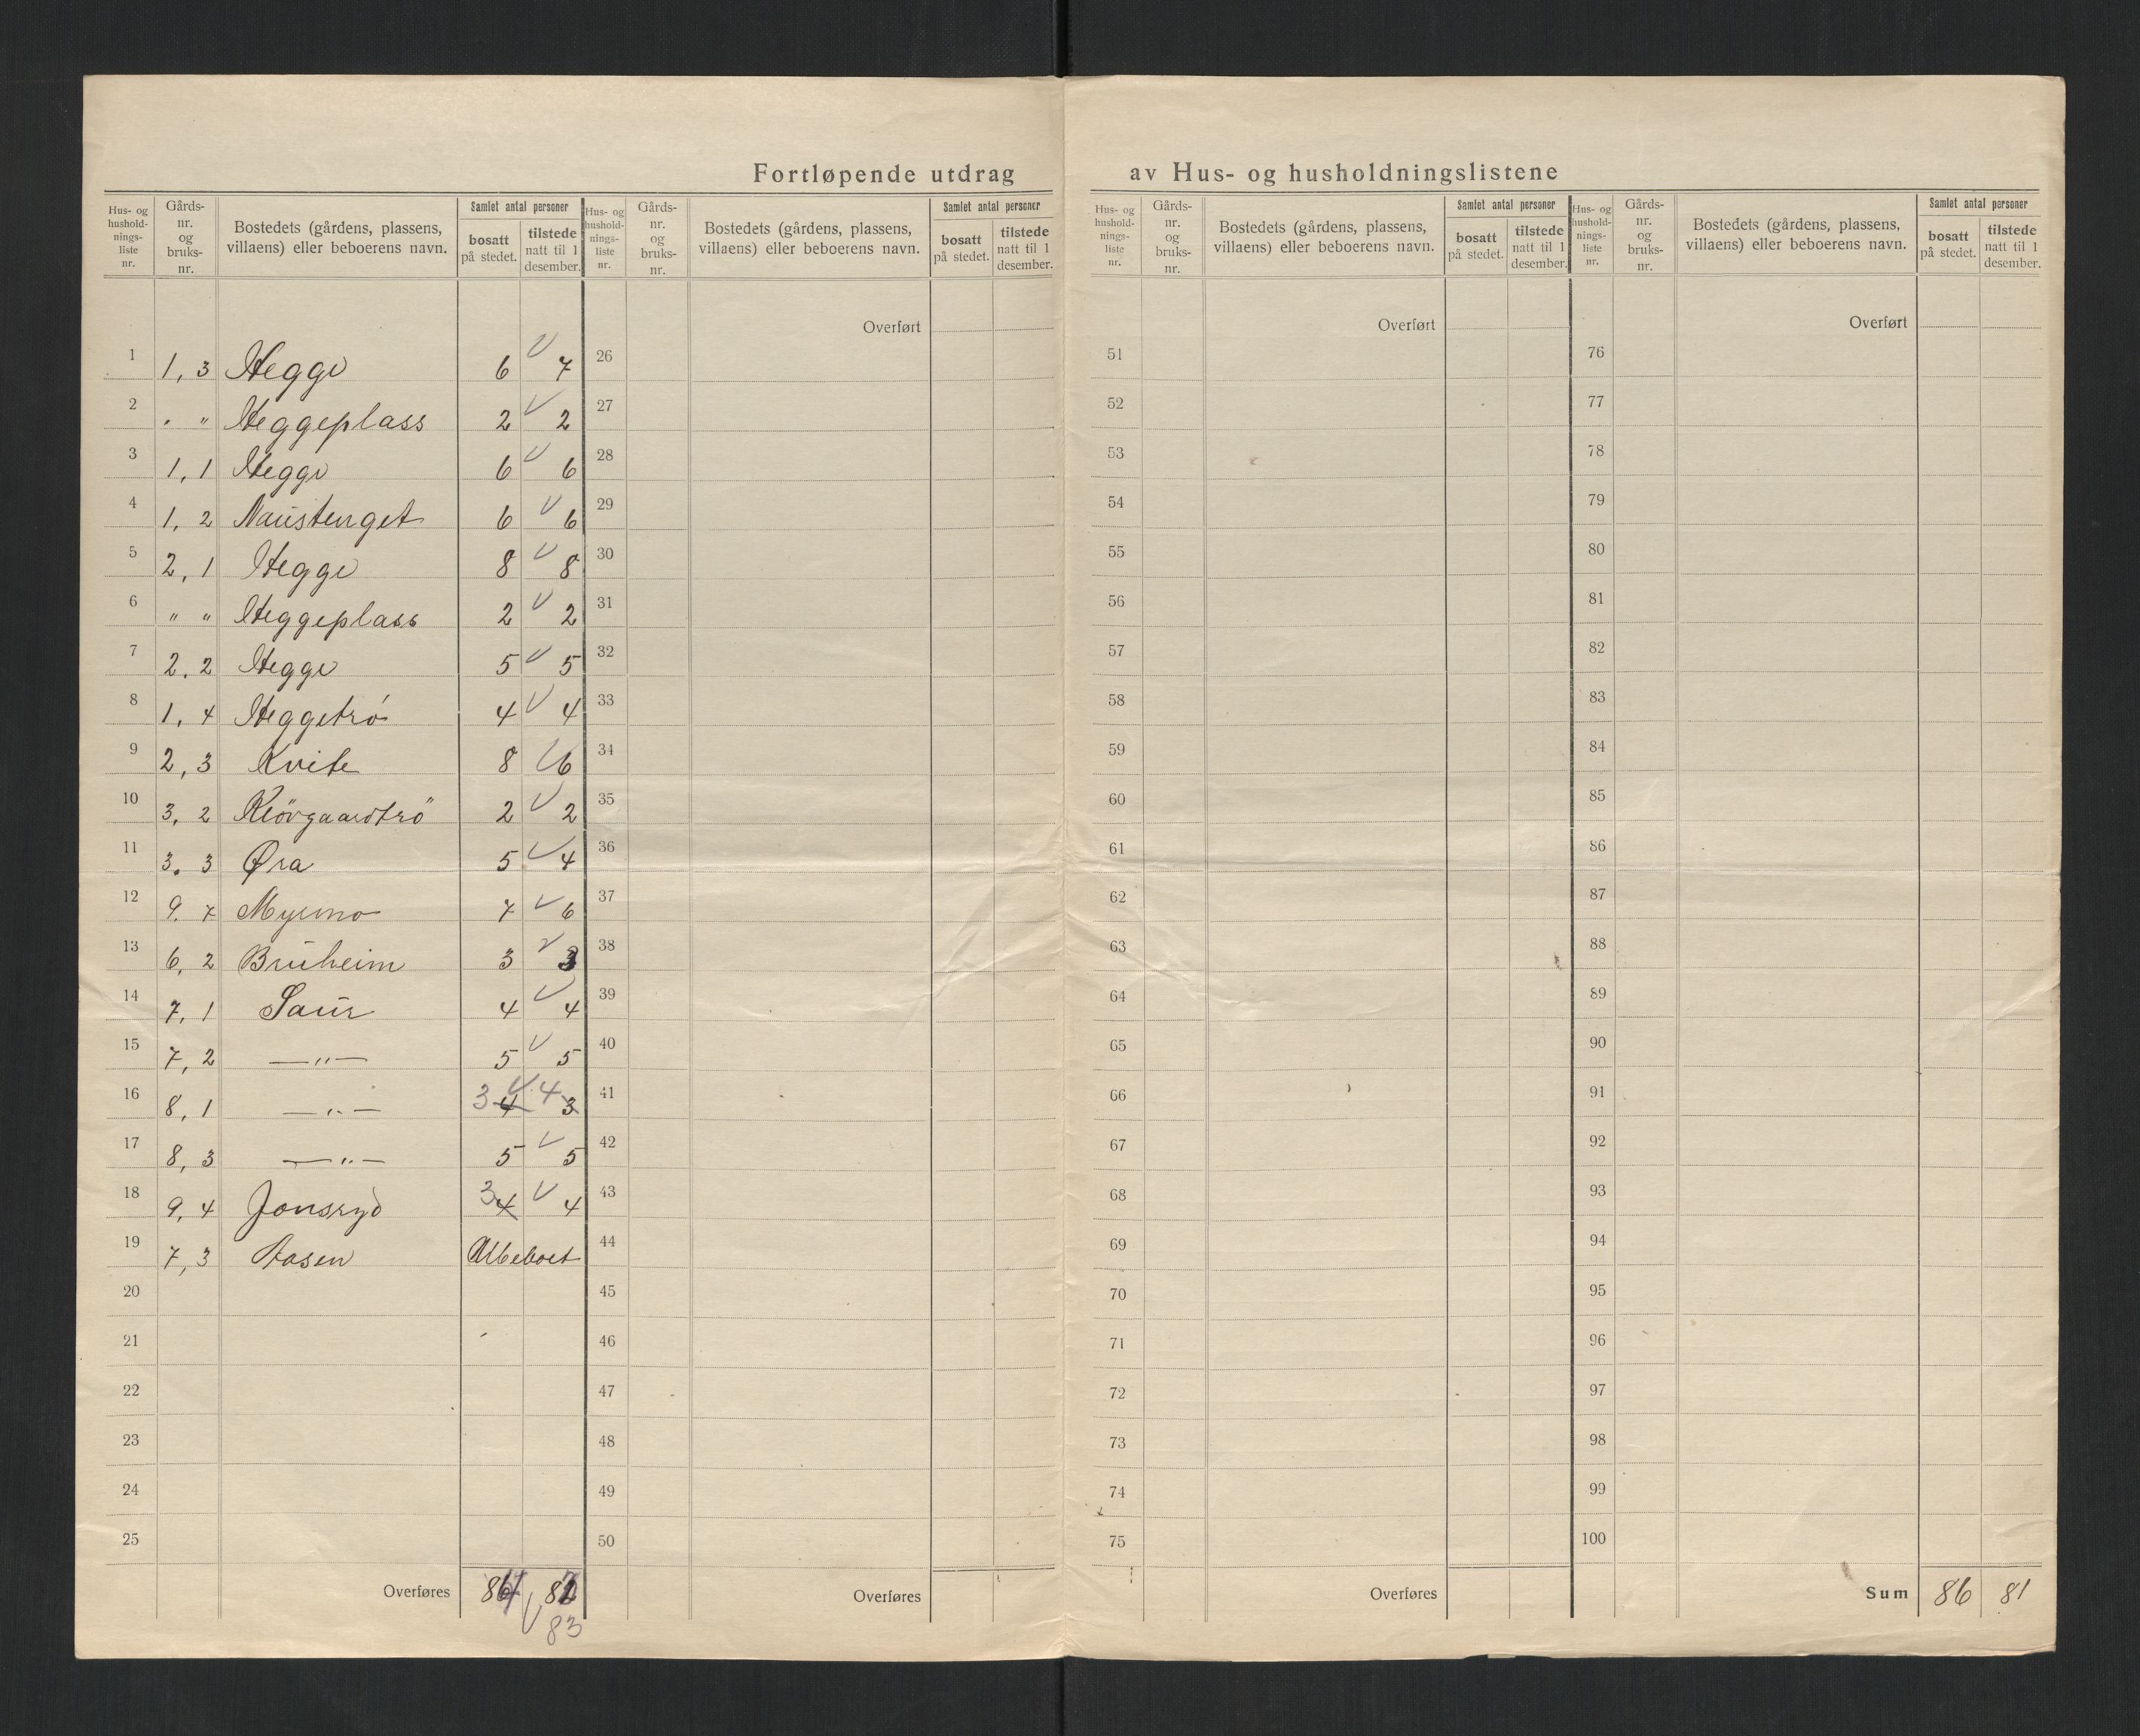 Fortløpende utdrag av Hus- og husholdningslistene
Hus- og hushold-nings-liste nr. | Gårds-nr. og bruks-nr. | Bostedets (gårdens, plassens, villaens) eller beboerens navn. | Samlet antal personer | bosatt på stedet. | tilstede natt til 1 desember.
Hus- og hushold-nings-liste nr. | Gårds-nr. og bruks-nr. | Bostedets (gårdens, plassens, villaens) eller beboerens navn. | Samlet antal personer | bosatt på stedet. | tilstede natt til 1 desember.
Overført
1 1, 3 Hegge 6 7
2 " " Heggeplass 2 2
3 1, 1 Hegge 6 6
4 1, 2 Naustenget 6 6
5 2, 1 Hegge 8 8
6 " " Heggeplass 2 2
7 2, 2 Hegge 5 5
8 1, 4 Heggetrø 4 4
9 2, 3 Kvite 8 6
10 3, 2 2 2
11 3. 3 Øra 5 4
12 9. 7 Myrmo 7 6
13 6, 2 Bruheim 3 3
14 7, 1 Saur 4 4
15 7, 2 —"— 5 5
16 8, 1 —"— 3 4 4 3
17 8, 3 —"— 5 5
18 9, 4 Jonsryd 3 4 4
19 7, 3 Aasen Ubeboet
20
21
22
23
24
25
Overføres 83
26
27
28
29
30
31
32
33
34
35
36
37
38
39
40
41
42
43
44
45
46
47
48
49
50
Overføres
Hus- og hushold-nings-liste nr. | Gårds-nr. og bruks-nr. | Bostedets (gårdens, plassens, villaens) eller beboerens navn. | Samlet antal personer | bosatt på stedet. | tilstede natt til 1 desember.
Overført
51
52
53
54
55
56
57
58
59
60
61
62
63
64
65
66
67
68
69
70
71
72
73
74
75
Overføres
Hus- og hushold-nings-liste nr. | Gårds-nr. og bruks-nr. | Bostedets (gårdens, plassens, villaens) eller beboerens navn. | Samlet antal personer | bosatt på stedet. | tilstede natt til 1 desember.
Overført
76
77
78
79
80
81
82
83
84
85
86
87
88
89
90
91
92
93
94
95
96
97
98
99
100
Sum 86 81